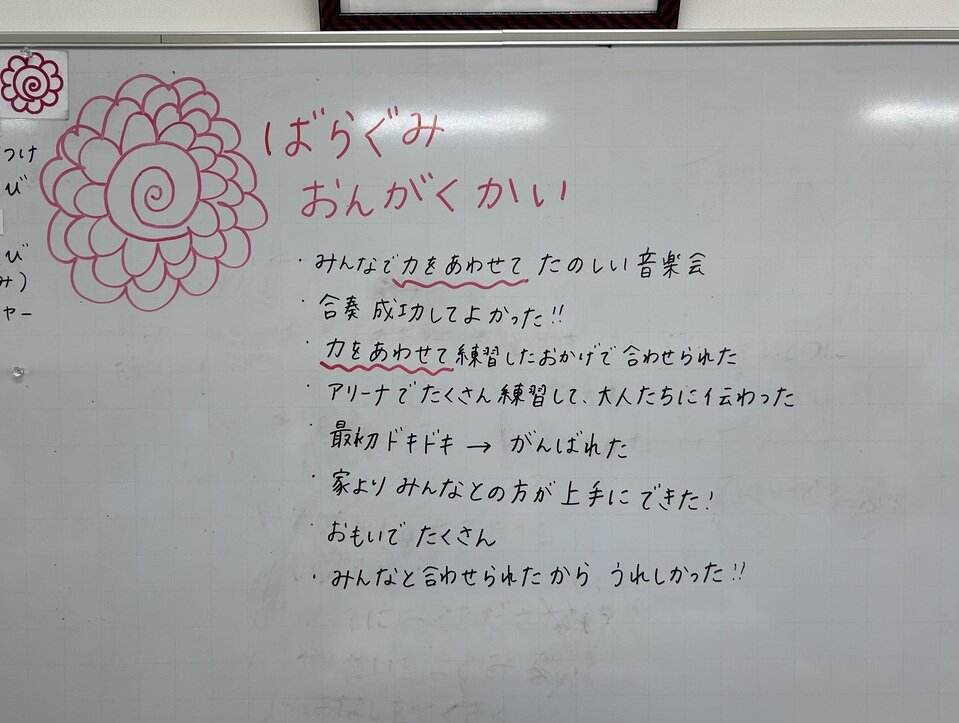 ばらぐみ
おんがくかい
・みんなで力をあわせて たのしい音楽会
・合奏 成功してよかった!!
・力をあわせて練習したおかげで合わせられた
・アリーナでたくさん練習して、大人たちに伝わった
・最初ドキドキ → がんばれた
・家より みんなとの方が上手にできた!
・おもいで たくさん
・みんなと合わせられたから うれしかった!!
つけ
び
び
み)
ャー